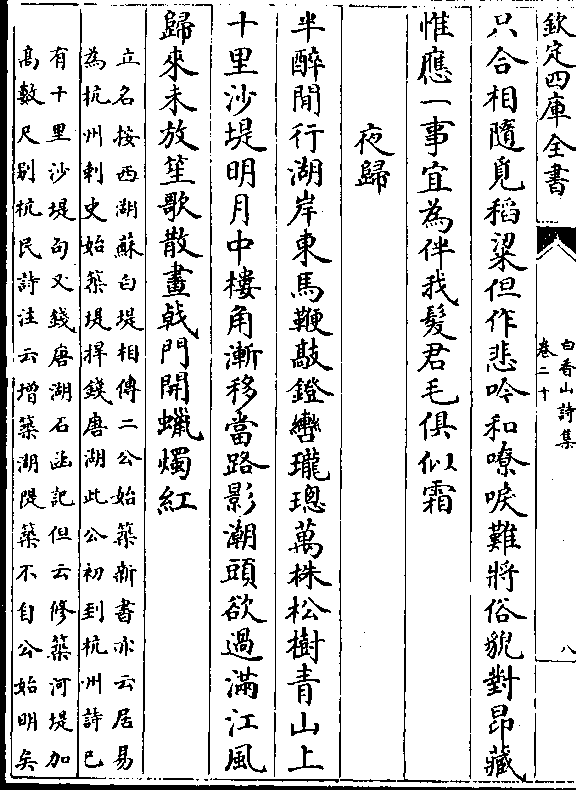 欽定四庫全書
白香山詩集
卷二十
八
只合相隨覓稻粱但作悲吟和嘹唳難將俗貌對昂藏
惟應一事宜為伴我髮君毛俱似霜
夜歸
半醉閒行湖岸東馬鞭敲鐙轡瓏璁萬株松樹青山上
十里沙堤明月中樓角漸移當路影潮頭欲過滿江風
歸來未放笙歌散畫戟門開蠟燭紅
立名按西湖蘇白堤相傳二公始築新書亦云居易
為杭州刺史始築堤捍錢唐湖此公初到杭州詩已
有十里沙堤句又錢唐湖石函記但云修築河堤加
高數尺别杭民詩注云增築湖隄築不自公始明矣